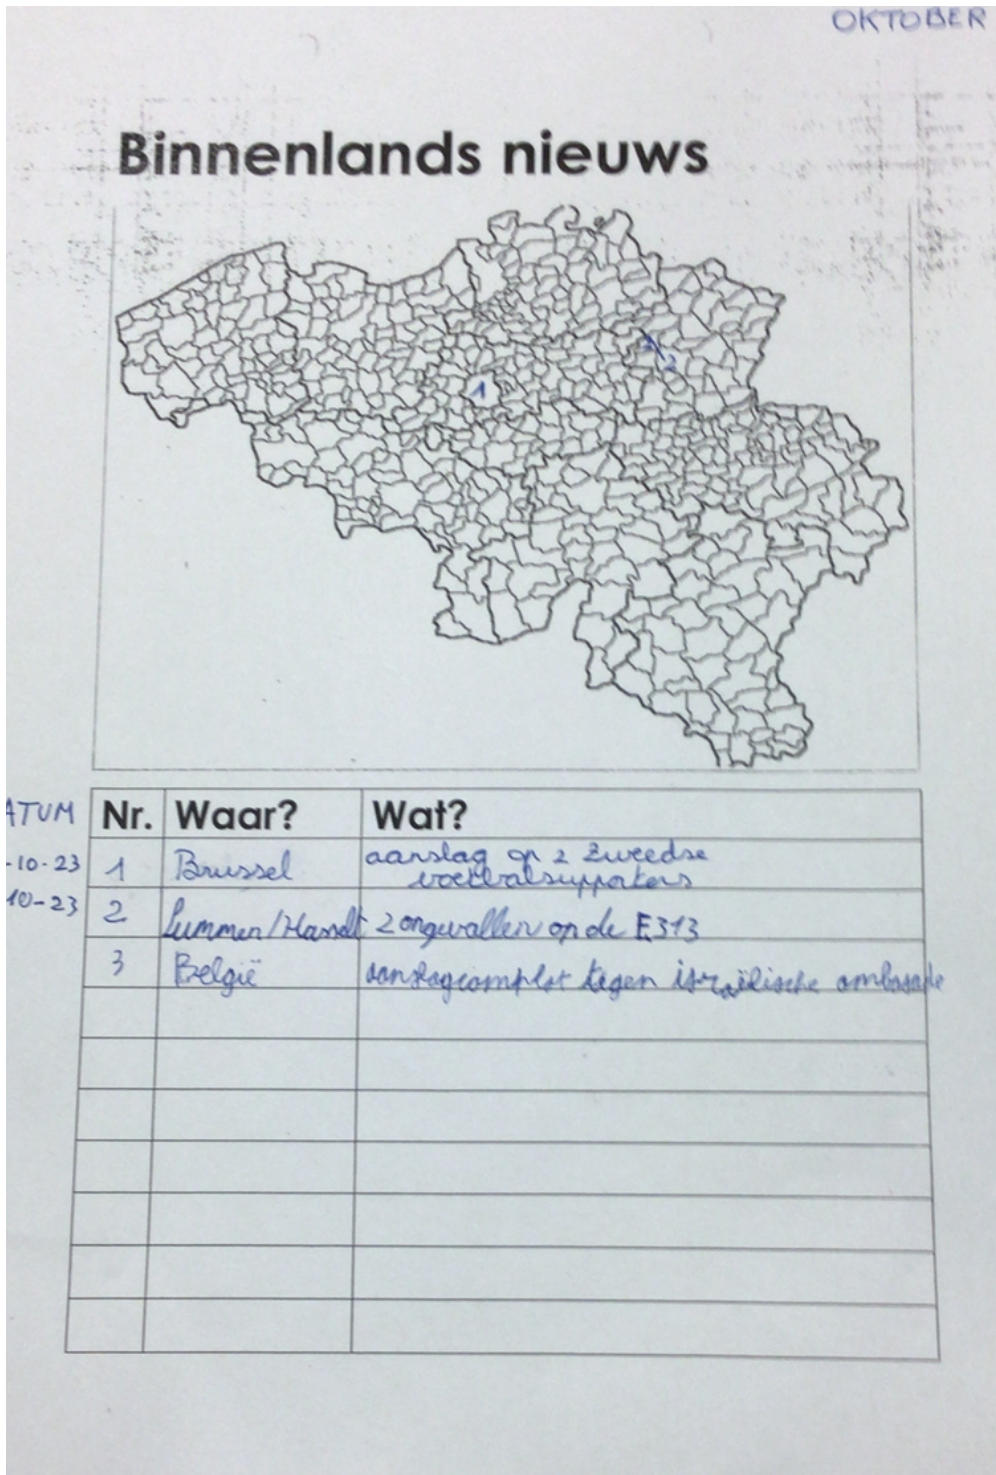 OKTOBER
Binnenlands nieuws
1
2
ATUM Nr. Waar? Wat?
-10-23 1 Brussel aanslag op 2 Zweedse
voetbalsupporters
10-23 2 Lummen/Hasselt 2 ongevallen op de E313
3 België aanslagcomplot tegen israëlische ambasade